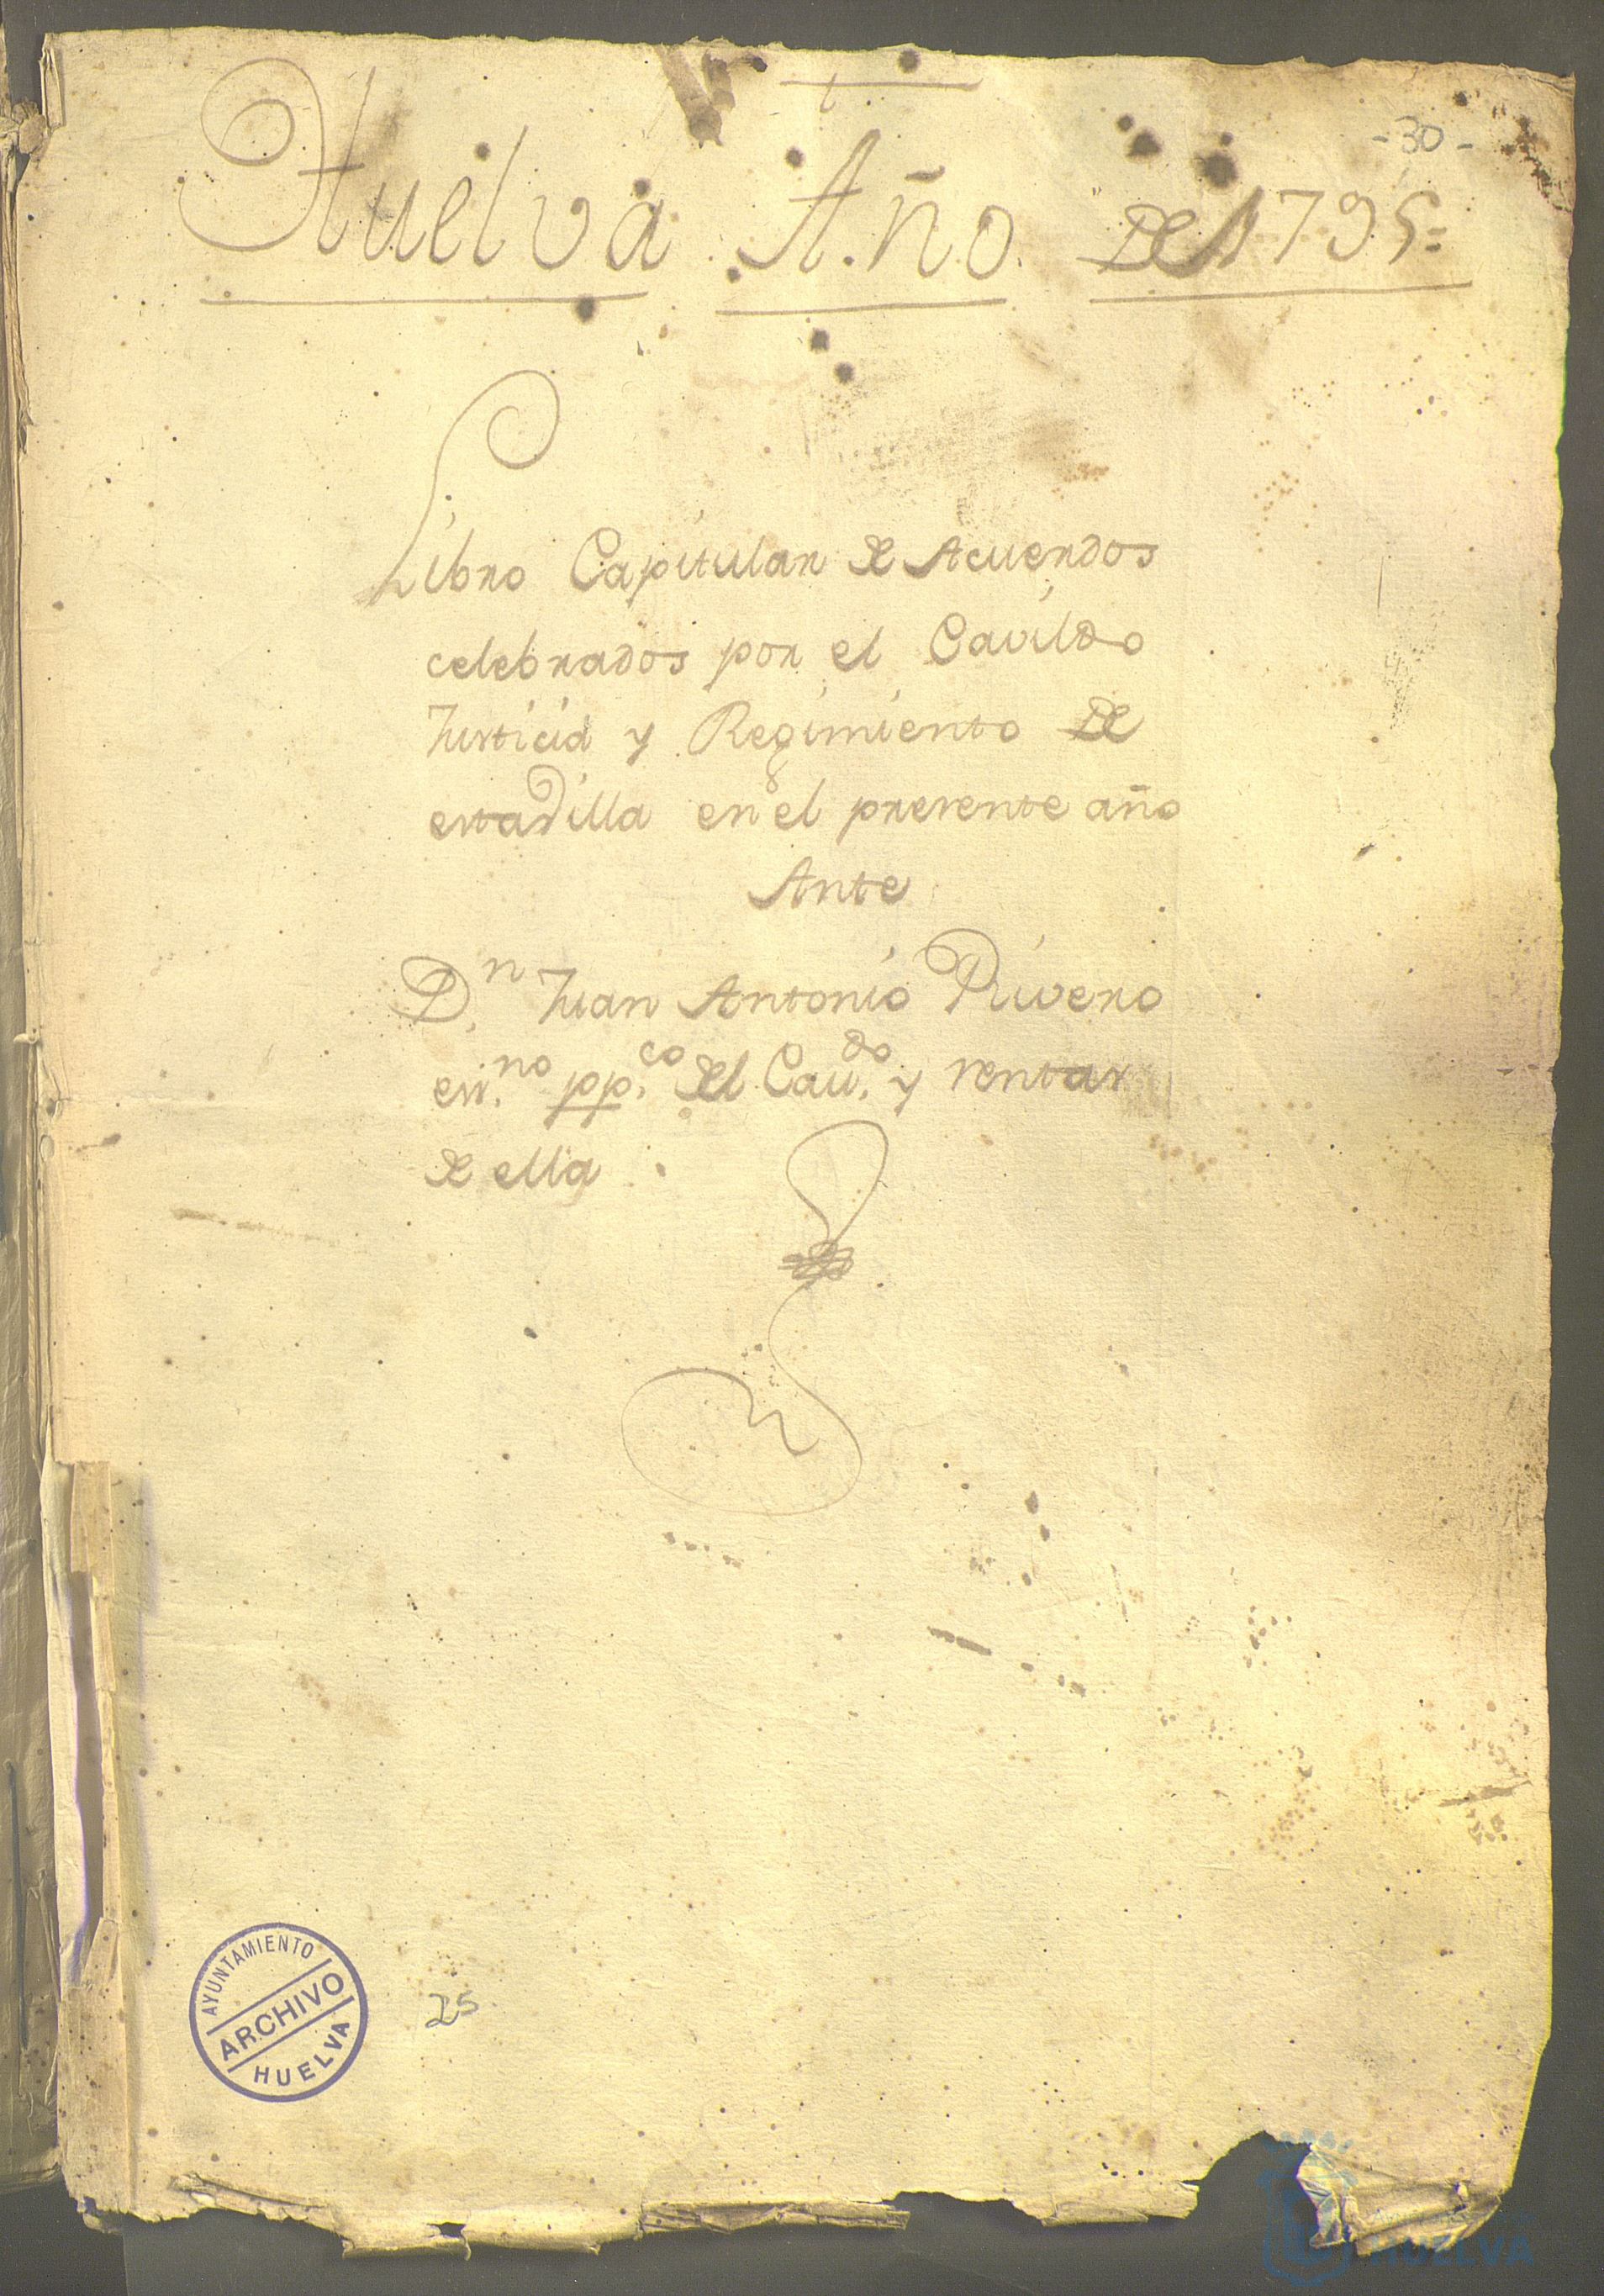 -30-
Huelva Año de 1795=
Libro Capitular de Acuerdos
celebrados por el Cavildo
Justicia y Regimiento de
esta villa en el presente año
Ante
D.n Juan Antonio Rivero
ess.no pp.co del Cau.do y rentas
de ella
AYUNTAMIENTO
ARCHIVO
HUELVA
25
HUELVA